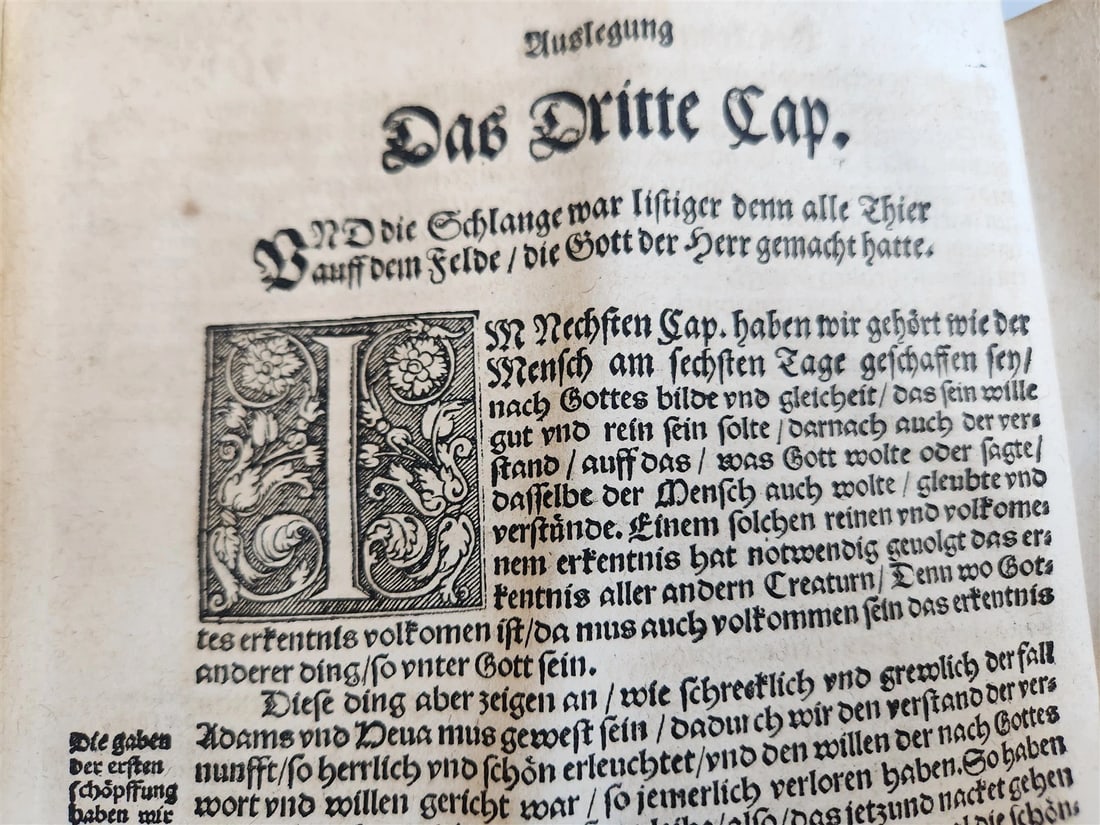 Auslegung
Das Dritte Cap.
VND die Schlange war listiger denn alle Thier
auff dem Felde / die Gott der Herr gemacht hatte.
IM Nechsten Cap. haben wir gehört wie der
Mensch am sechsten Tage geschaffen sey/
nach Gottes bilde vnd gleicheit / das sein wille
gut vnd rein sein solte / darnach auch der ver⸗
stand / auff das / was Gott wolte oder sagte/
dasselbe der Mensch auch wolte / gleubte vnd
verstünde. Einem solchen reinen vnd volkome⸗
nem erkentnis hat notwendig geuolgt das er⸗
kentnis aller andern Creaturn / Denn wo Got⸗
tes erkentnis volkomen ist / da mus auch volkommen sein das erkentnis
anderer ding / so vnter Gott sein.
Diese ding aber zeigen an / wie schrecklich vnd grewlich der fall
Adams vnd Heua mus gewest sein / dadurch wir den verstand der ver⸗
nunfft / so herrlich vnd schön erleuchtet / vnd den willen der nach Gottes
wort vnd willen gericht war / so jemerlich verloren haben. So haben
also / das jetzund nacket gehen
die schön⸗
Die gaben
der ersten
schöpffung
haben wir